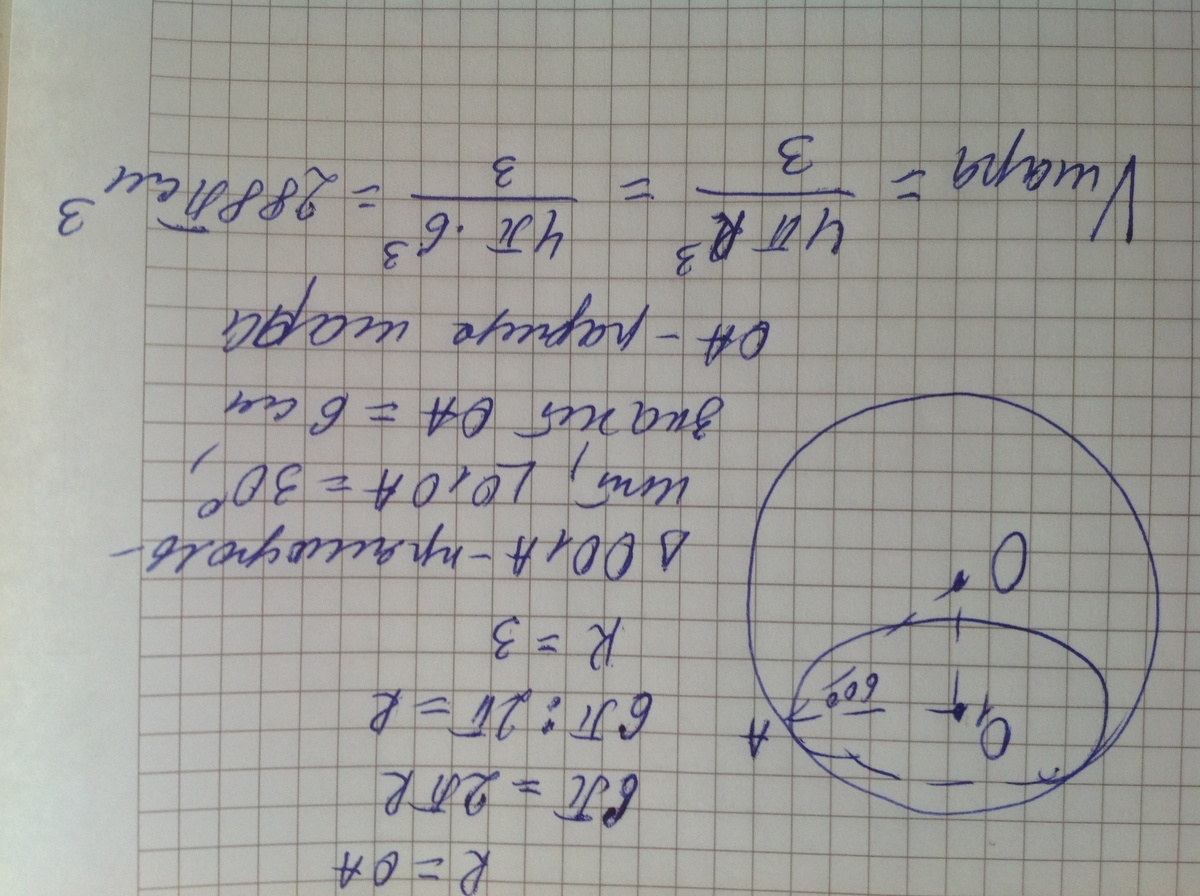 R = OA
6π = 2πR
6π : 2π = R
R = 3
△OO₁A - прямоуголь-
ный, ∠O₁OA = 30°,
значит OA = 6 см
OA - радиус шара
Vшара = 4πR³/3 = 4π·6³/3 = 288π см³
O₁
A
60°
O